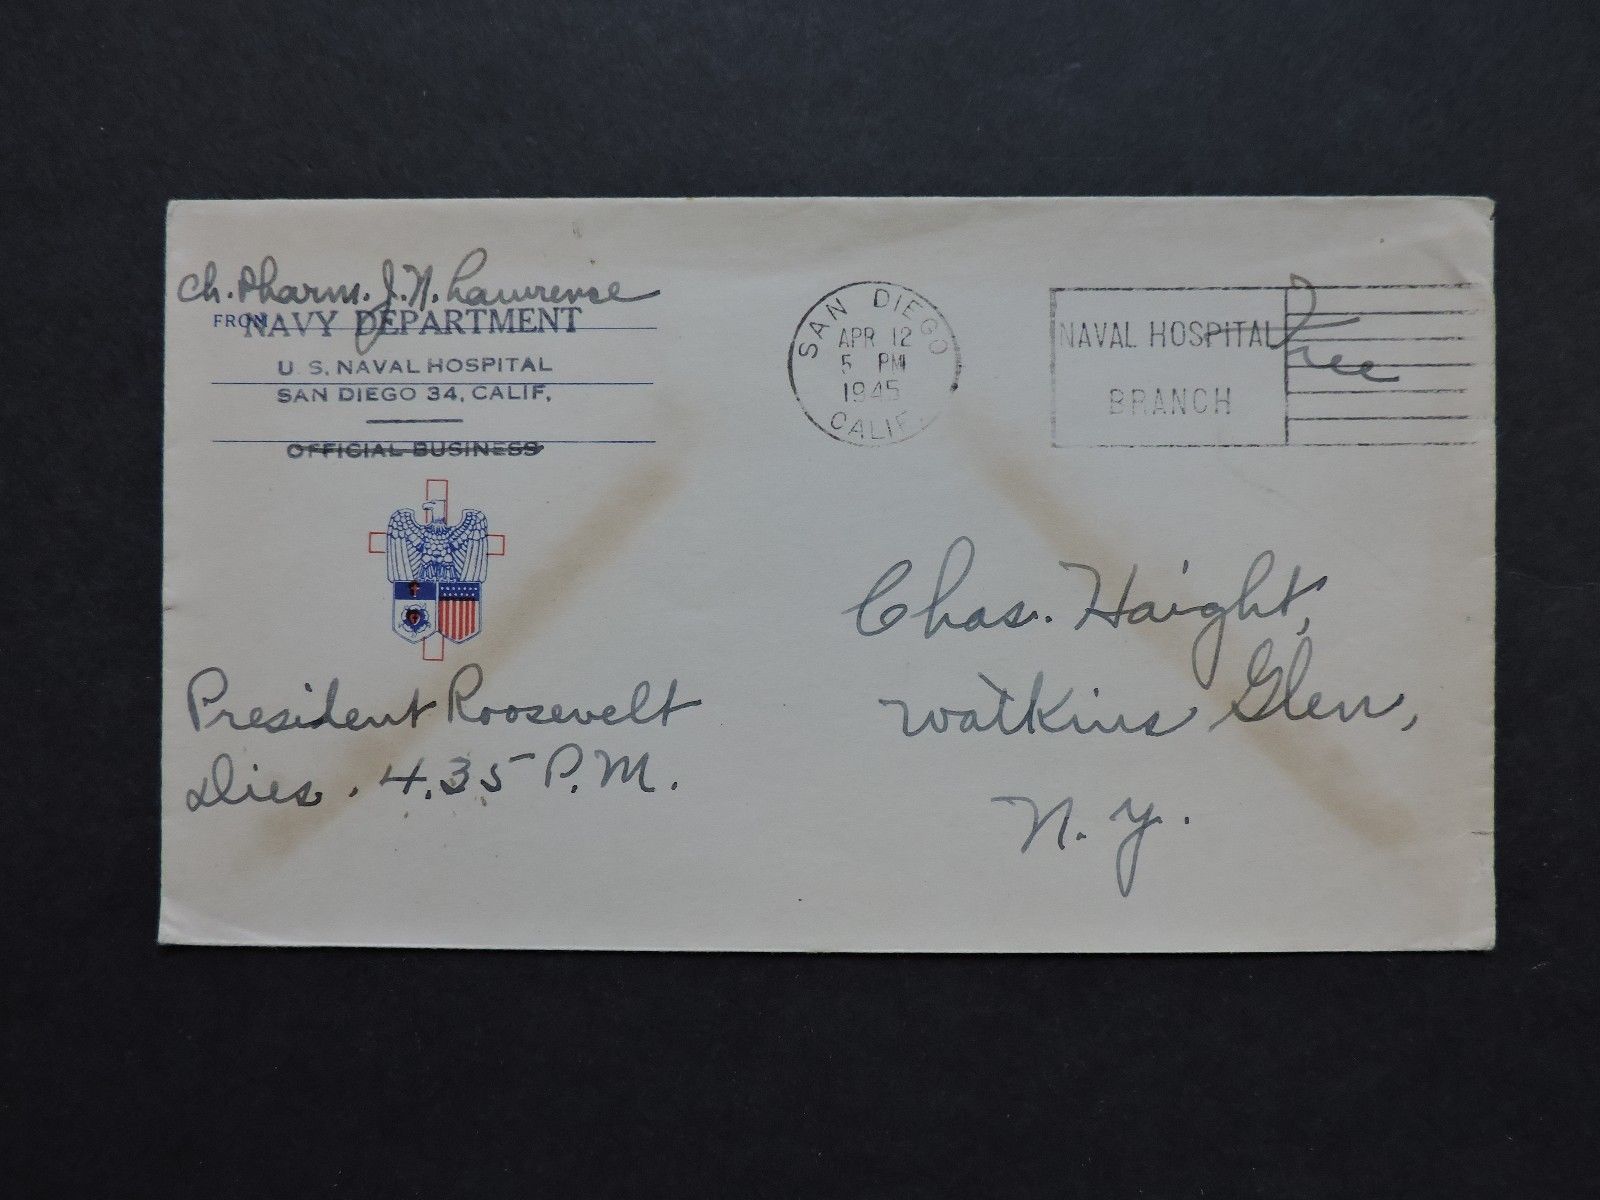 Ch. Pharm. J. N. Lawrence
FROM
NAVY DEPARTMENT
U. S. NAVAL HOSPITAL
SAN DIEGO 34, CALIF.
OFFICIAL BUSINESS
SAN DIEGO
APR 12
5 PM
1945
CALIF.
NAVAL HOSPITAL
BRANCH
Free
President Roosevelt
Dies. 4.35 P.M.
Chas. Haight,
Watkins Glen,
N. Y.